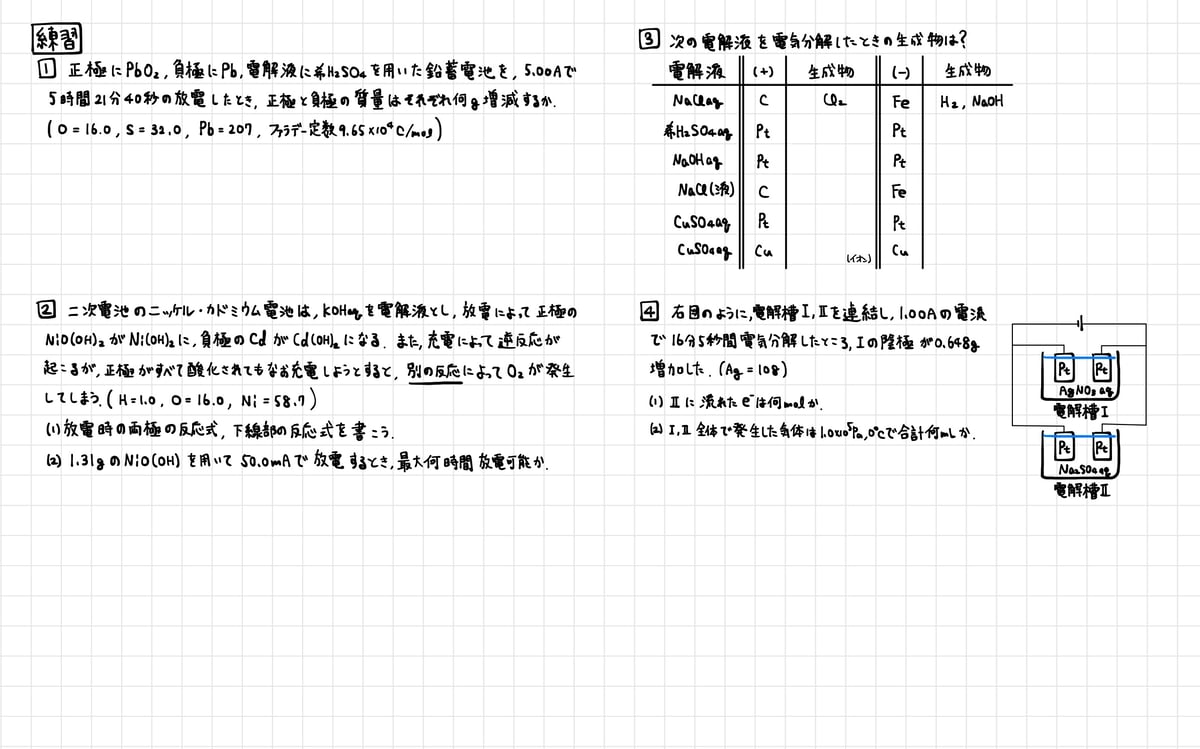 練習
1 正極にPbO₂,負極にPb,電解液に希H₂SO₄を用いた鉛蓄電池を,5.00Aで
5時間21分40秒の放電したとき,正極と負極の質量はそれぞれ何g増減するか.
(O=16.0,S=32.0,Pb=207,ファラデー定数9.65×10⁴C/mol)
2 二次電池のニッケル・カドミウム電池は,KOHaqを電解液とし,放電によって正極の
NiO(OH)₂がNi(OH)₂に,負極のCdがCd(OH)₂になる.また,充電によって逆反応が
起こるが,正極がすべて酸化されてもなお充電しようとすると,別の反応によってO₂が発生
してしまう.(H=1.0,O=16.0,Ni=58.7)
(1)放電時の両極の反応式,下線部の反応式を書こう.
(2)1.31gのNiO(OH)を用いて50.0mAで放電するとき,最大何時間放電可能か.
3 次の電解液を電気分解したときの生成物は?
電解液 (+) 生成物 (-) 生成物
NaClaq C Cl₂ Fe H₂,NaOH
希H₂SO₄aq Pt Pt
NaOHaq Pt Pt
NaCl(液) C Fe
CuSO₄aq Pt Pt
CuSO₄aq Cu (イオン) Cu
4 右図のように,電解槽I,IIを連結し,1.00Aの電流
で16分5秒間電気分解したところ,Iの陰極が0.648g
増加した.(Ag=108)
(1)IIに流れたe⁻は何molか.
(2)I,II全体で発生した気体は1.0×10⁵Pa,0℃で合計何mLか.
Pt Pt
AgNO₃aq
電解槽I
Pt Pt
Na₂SO₄aq
電解槽II